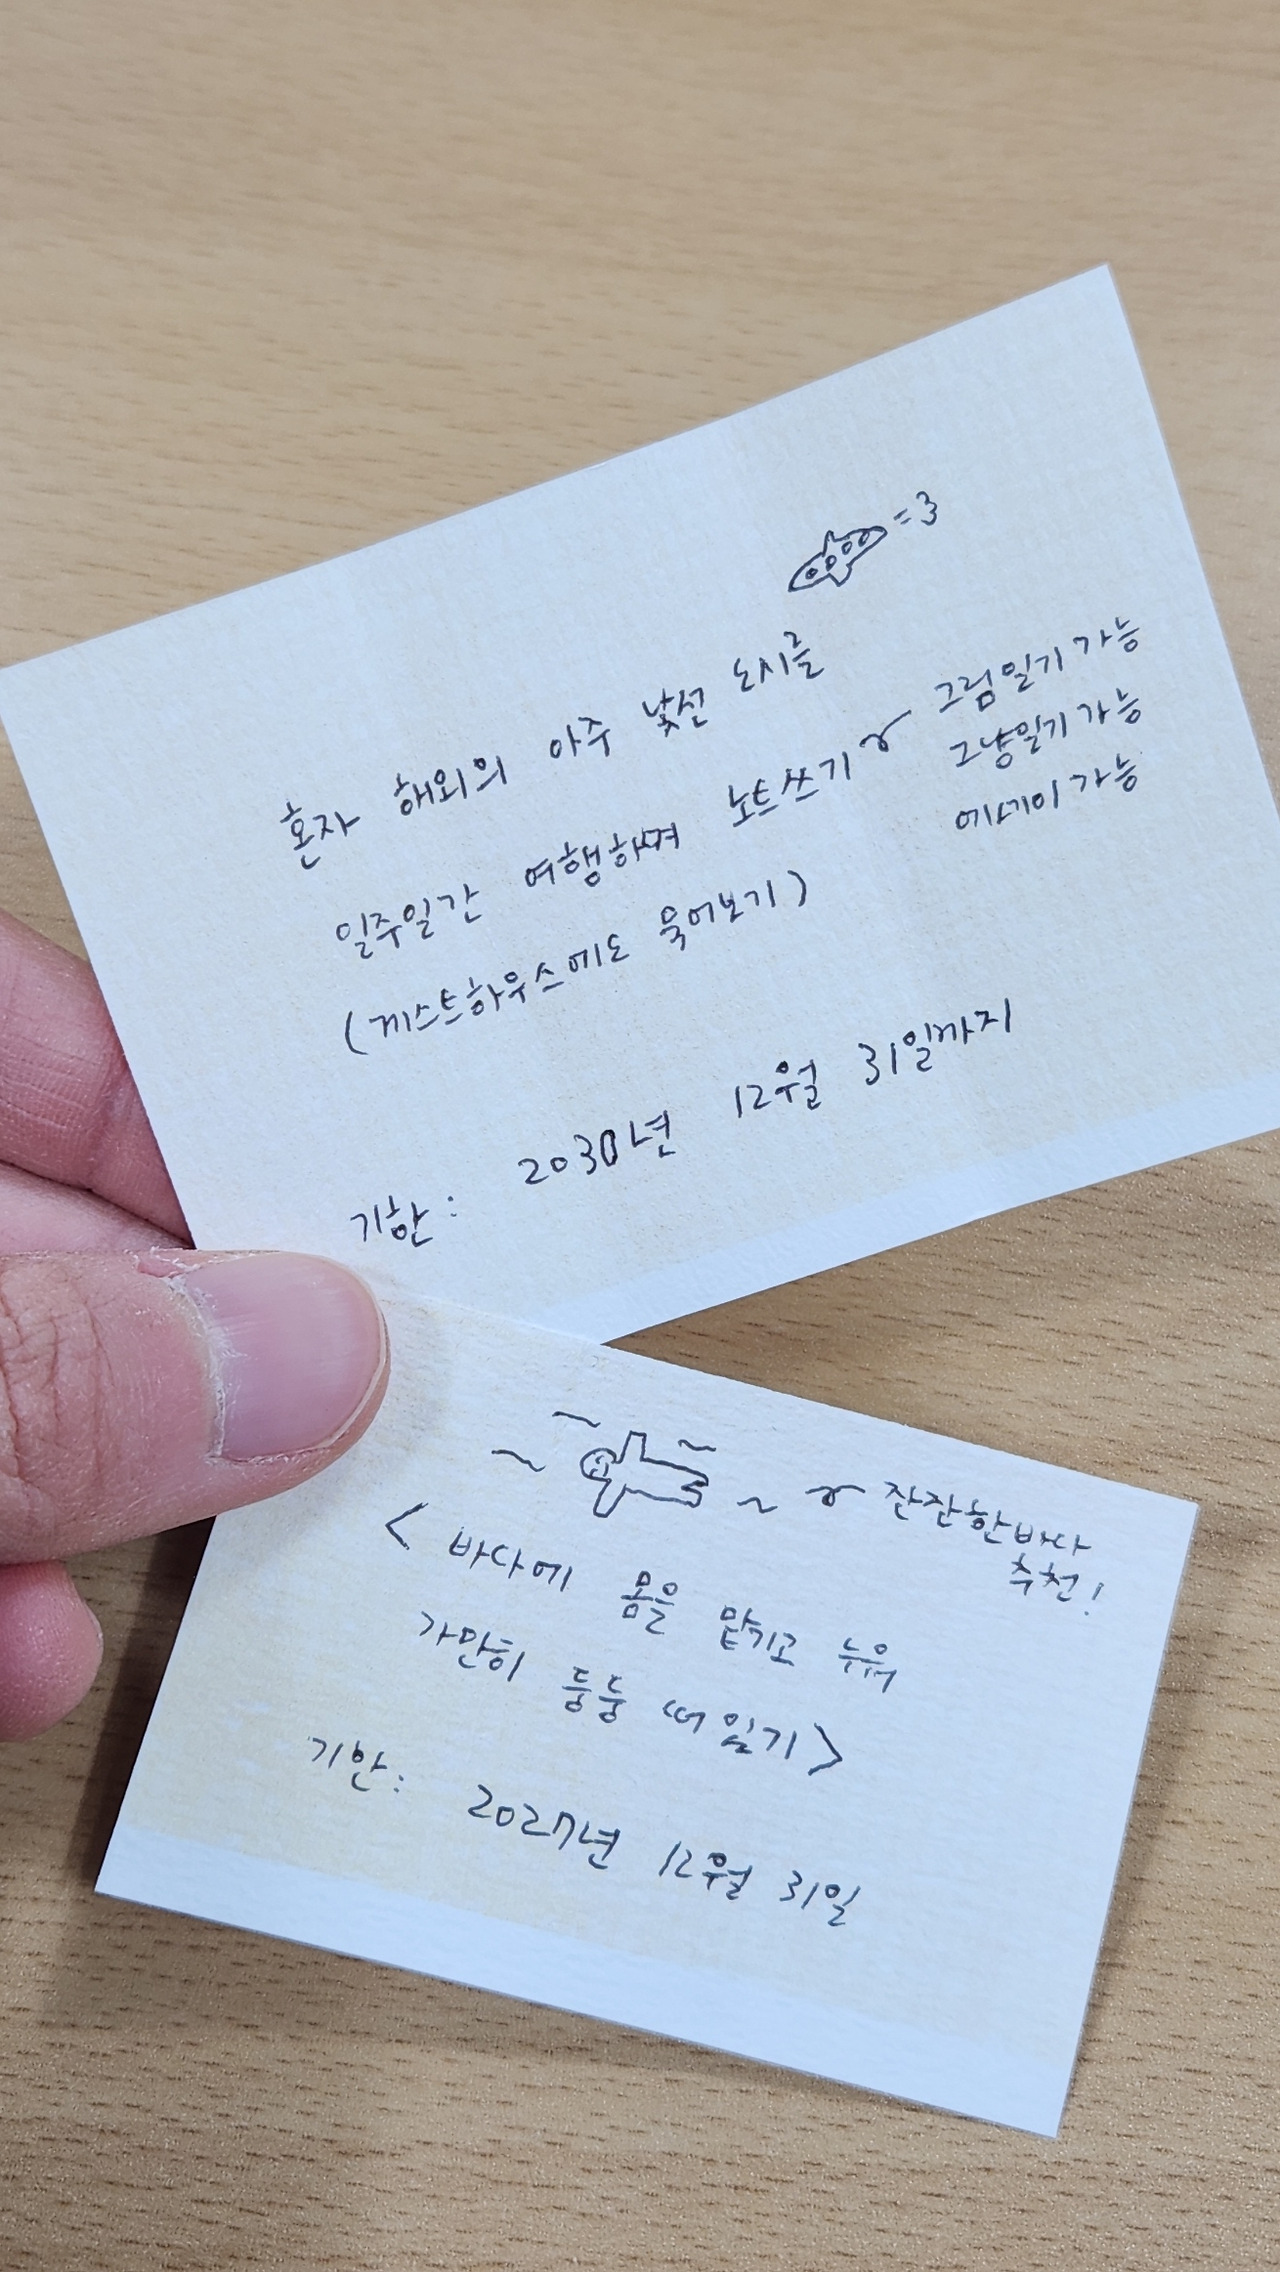 =3
혼자 해외의 아주 낯선 도시를
일주일간 여행하며 노트쓰기
그림일기 가능
그냥일기 가능
에세이 가능
(게스트하우스에도 묵어보기)
기한: 2030년 12월 31일까지
잔잔한바다
추천!
<바다에 몸을 맡기고 누워
가만히 둥둥 떠있기>
기한: 2027년 12월 31일